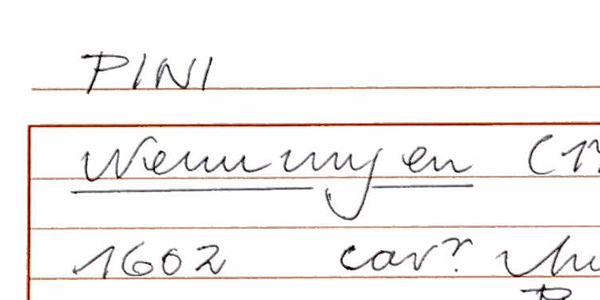 PINI
Wemmingen (1
1602 cav?